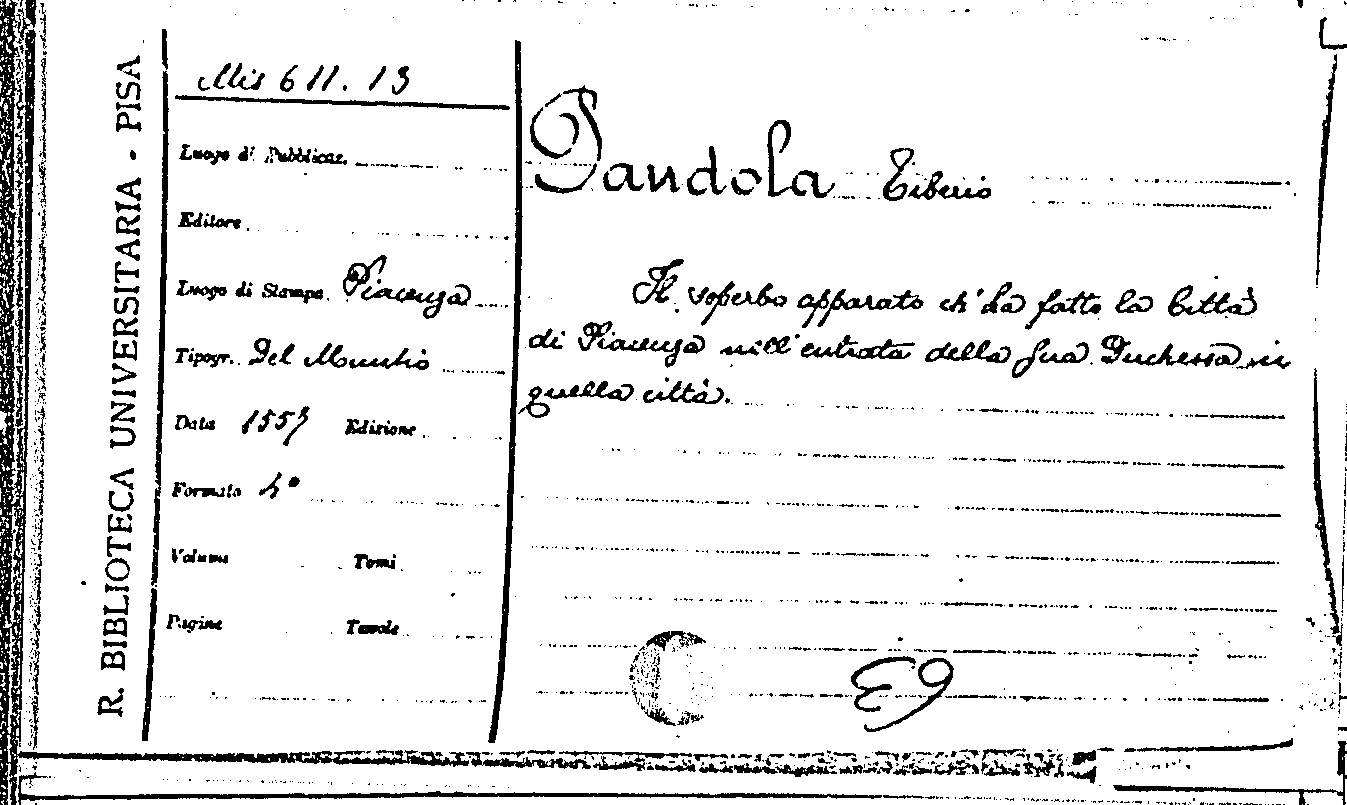 R. BIBLIOTECA UNIVERSITARIA - PISA
Mis 611. 13
Luogo di Pubblicaz.
Editore
Luogo di Stampa Piacenza
Tipogr. Del Muntio
Data 1557 Edizione
Formato 4°
Volume Tomi
Pagine Tavole
Pandola Tiberio
Il soperbo apparato ch'ha fatto la Città
di Piacenza nell'entrata della sua Duchessa in
quella città.
E9